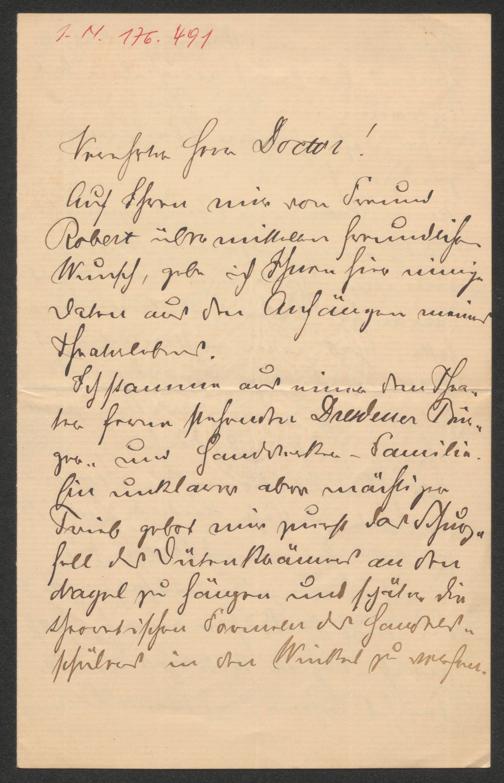 I. N. 176.491
Verehrter Herr Doctor!
Auf Ihren mir von Freund
Robert übermittelten freundlichen
Wunsch, gebe ich Ihnen hier einige
Daten aus den Anfängen meines
Theaterlebens.
Ich stamme aus einer dem Thea-
ter ferne stehenden Dresdener Bür-
ger- und Handwerker-Familie.
Ein unklarer aber mächtiger
Trieb gebot mir zuerst das Schurz-
fell des Dütenkrämers an den
Nagel zu hängen und später die
theoretischen Formeln des Handels-
schülers in den Winkel zu werfen.